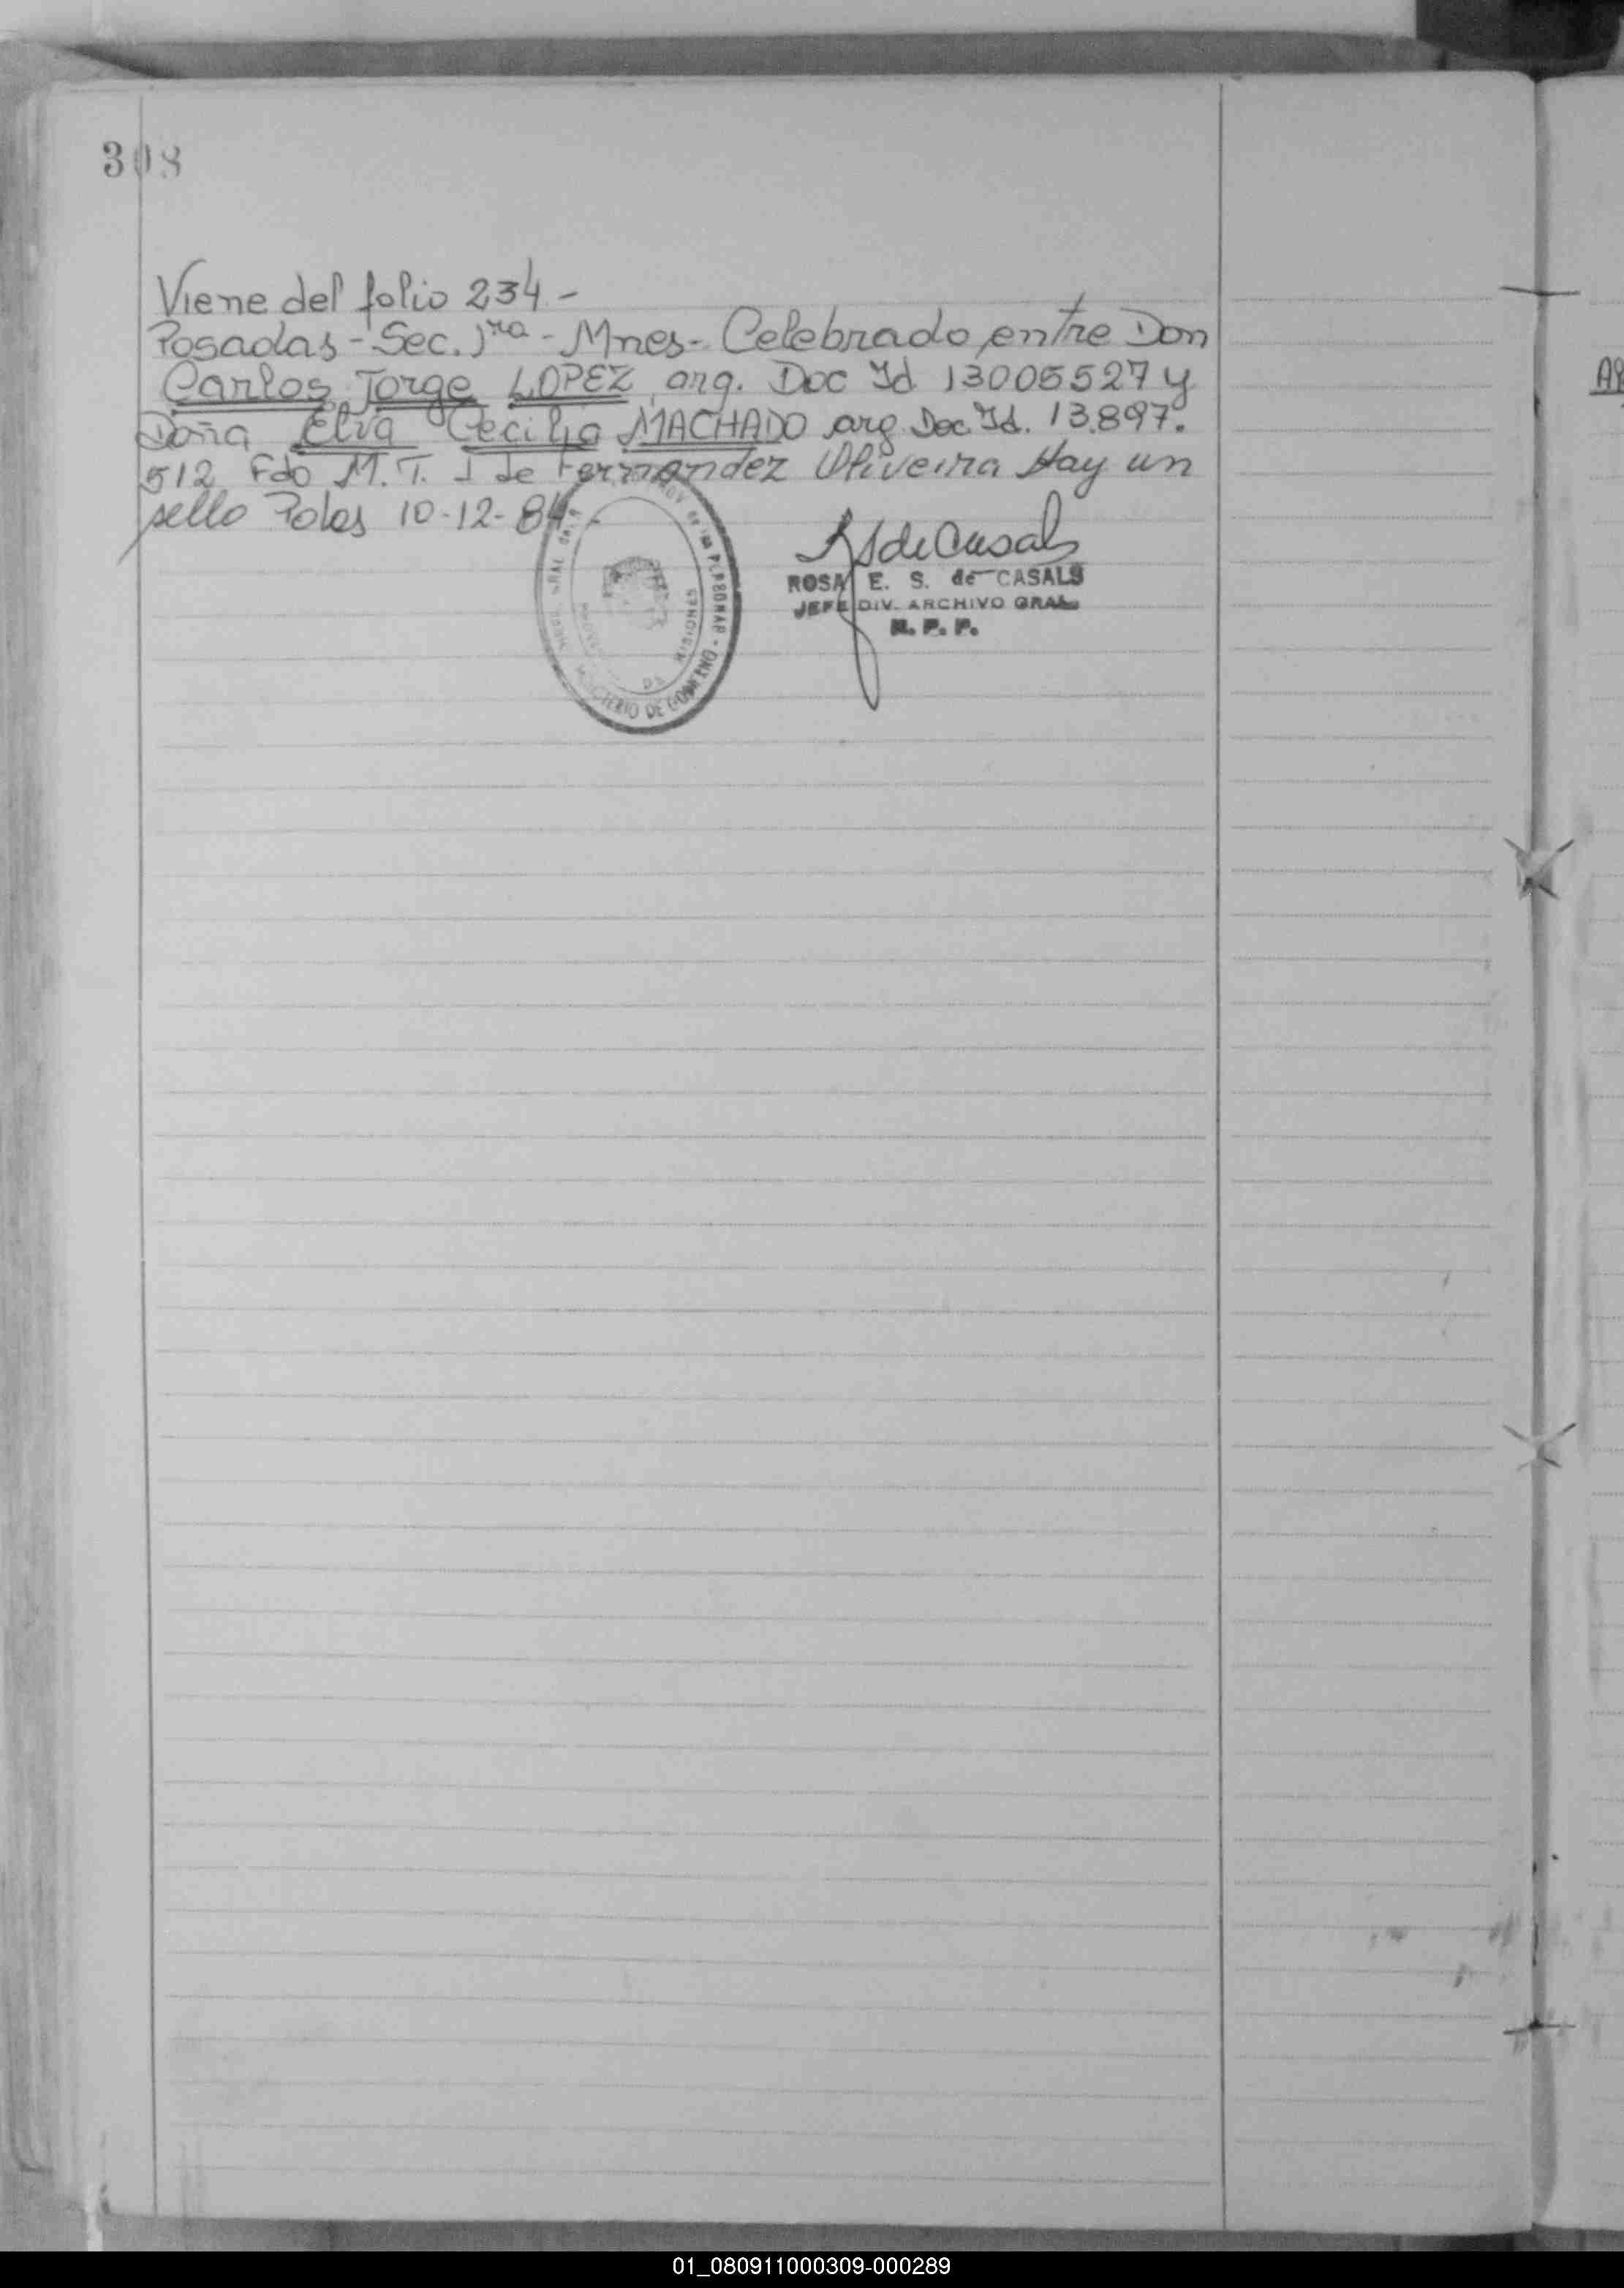 308
Viene del folio 234.-
Posadas - Sec. 1ra - Mnes - Celebrado entre Don
Carlos Jorge LOPEZ, arg. Doc Id 13005527 y
Doña Elva Cecilia MACHADO arg Doc Id. 13.897.
512 Fdo M. T. de Fernandez Oliveira Hay un
sello Pdas 10-12-84.-
ROSA E. S. de CASALS
JEFE DIV. ARCHIVO GRAL
R. P. P.
de las PERSONAS - MINISTERIO DE GOBIERNO
MISIONES
01_080911000309-000289